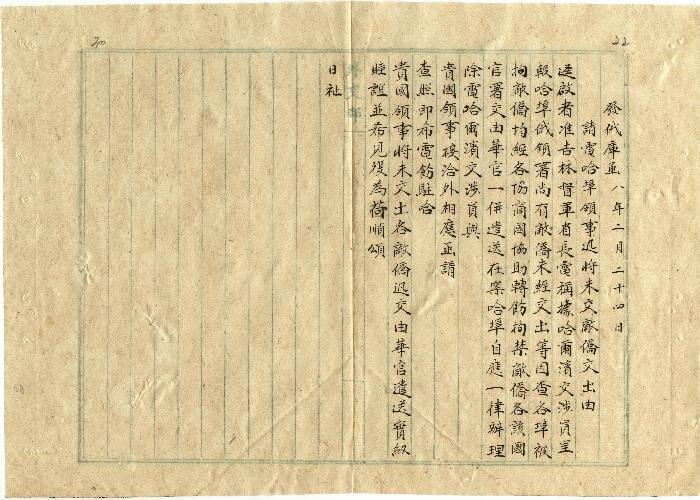 22
發俄庫函八年二月二十四日
請電哈埠領事迅將未交敵僑交出由
逕啟者准吉林督軍省長電稱據哈爾濱交涉員呈
報哈埠俄領署尚有敵僑未經交出等因查各埠被
拘敵僑均經各協商國協助轉飭拘禁敵僑各該國
官署交由華官一併遣送在案哈埠自應一律辦理
除電哈爾濱交涉員與
貴國領事接洽外相應函請
查照即希電飭駐哈
貴國領事將未交出各敵僑迅交由華官遣送實紉
睦誼並希見復為荷順頌
日祉
外交部